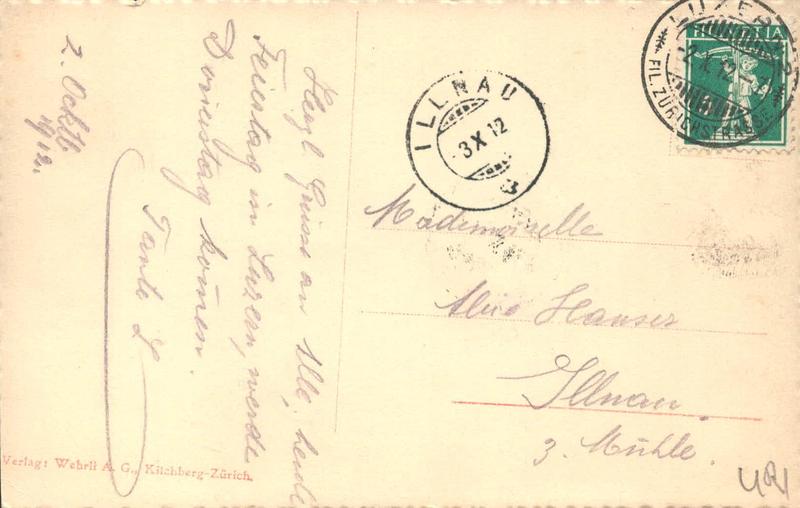 2. Octb.
1912.
Herzl. Grüsse an Alle, heute
Feiertag in Luzern, werde
Donnerstag kommen.
Tante L
Verlag: Wehrli A. G., Kilchberg-Zürich.
ILLNAU
3 X 12
LUZERN
2. X. 12
FIL. ZÜRICHSTRASSE
HELVETIA
Mademoiselle
Hauser
Illnau
z. Mühle.
URI